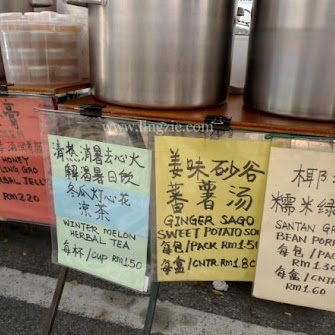 膏
HONEY
LING GAO
HERBAL JELLY
RM 2.20
www.lingzie.com
清热消暑去心火
解酒暑日饮
冬瓜灯心花
凉茶
WINTER MELON
HERBAL TEA
每杯/CUP RM1.50
姜味砂谷
蕃薯汤
GINGER SAGO
SWEET POTATO SOUP
每包/PACK RM1.50
每盒/CNTR RM1.80
椰
糯米绿
SANTAN GR
BEAN PORR
每包/PACK
RM 1.30
每盒/CNTR
RM 1.60